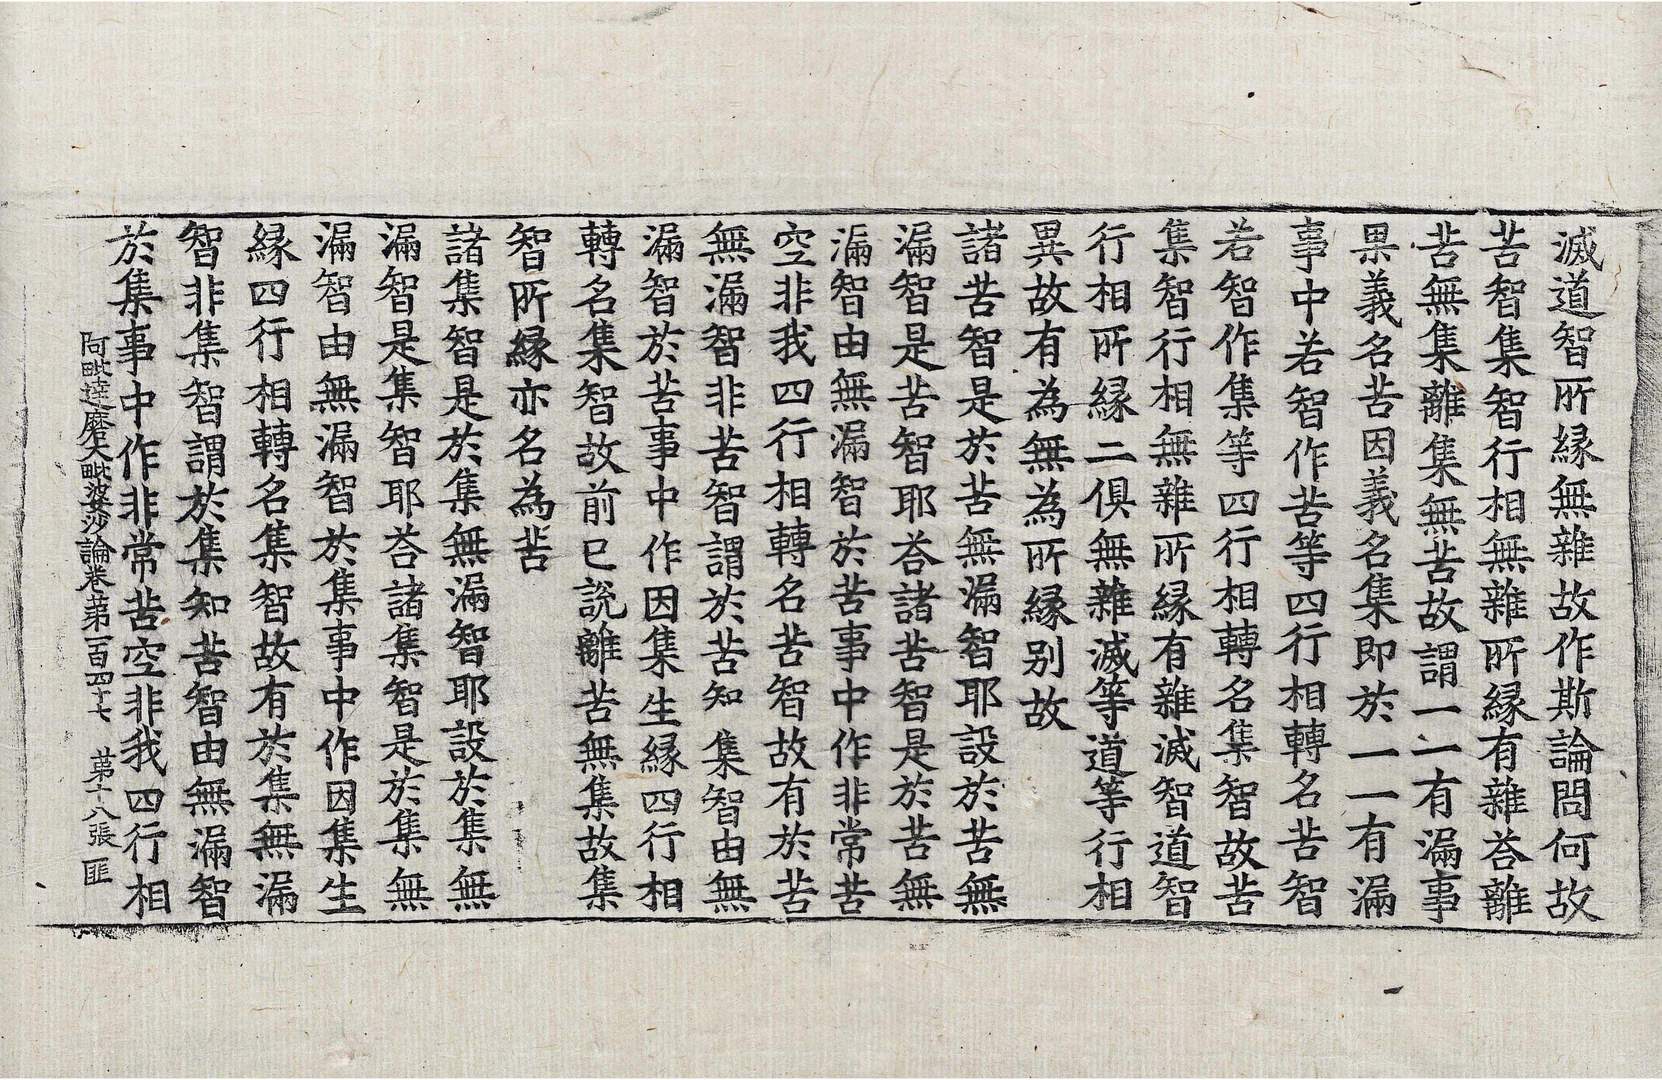 滅道智所緣無雜故作斯論問何故
苦智集智行相無雜所緣有雜荅離
苦無集離集無苦故謂一一有漏事
果義名苦因義名集即於一一有漏
事中若智作苦等四行相轉名苦智
若智作集等四行相轉名集智故苦
集智行相無雜所緣有雜滅智道智
行相所緣二俱無雜滅等道等行相
異故有為無為所緣別故
諸苦智是於苦無漏智耶設於苦無
漏智是苦智耶荅諸苦智是於苦無
漏智由無漏智於苦事中作非常苦
空非我四行相轉名苦智故有於苦
無漏智非苦智謂於苦知集智由無
漏智於苦事中作因集生緣四行相
轉名集智故前已說離苦無集故集
智所緣亦名為苦
諸集智是於集無漏智耶設於集無
漏智是集智耶荅諸集智是於集無
漏智由無漏智於集事中作因集生
緣四行相轉名集智故有於集無漏
智非集智謂於集知苦智由無漏智
於集事中作非常苦空非我四行相
阿毗達磨大毗婆沙論卷苐一百四十七 苐十八張 匪